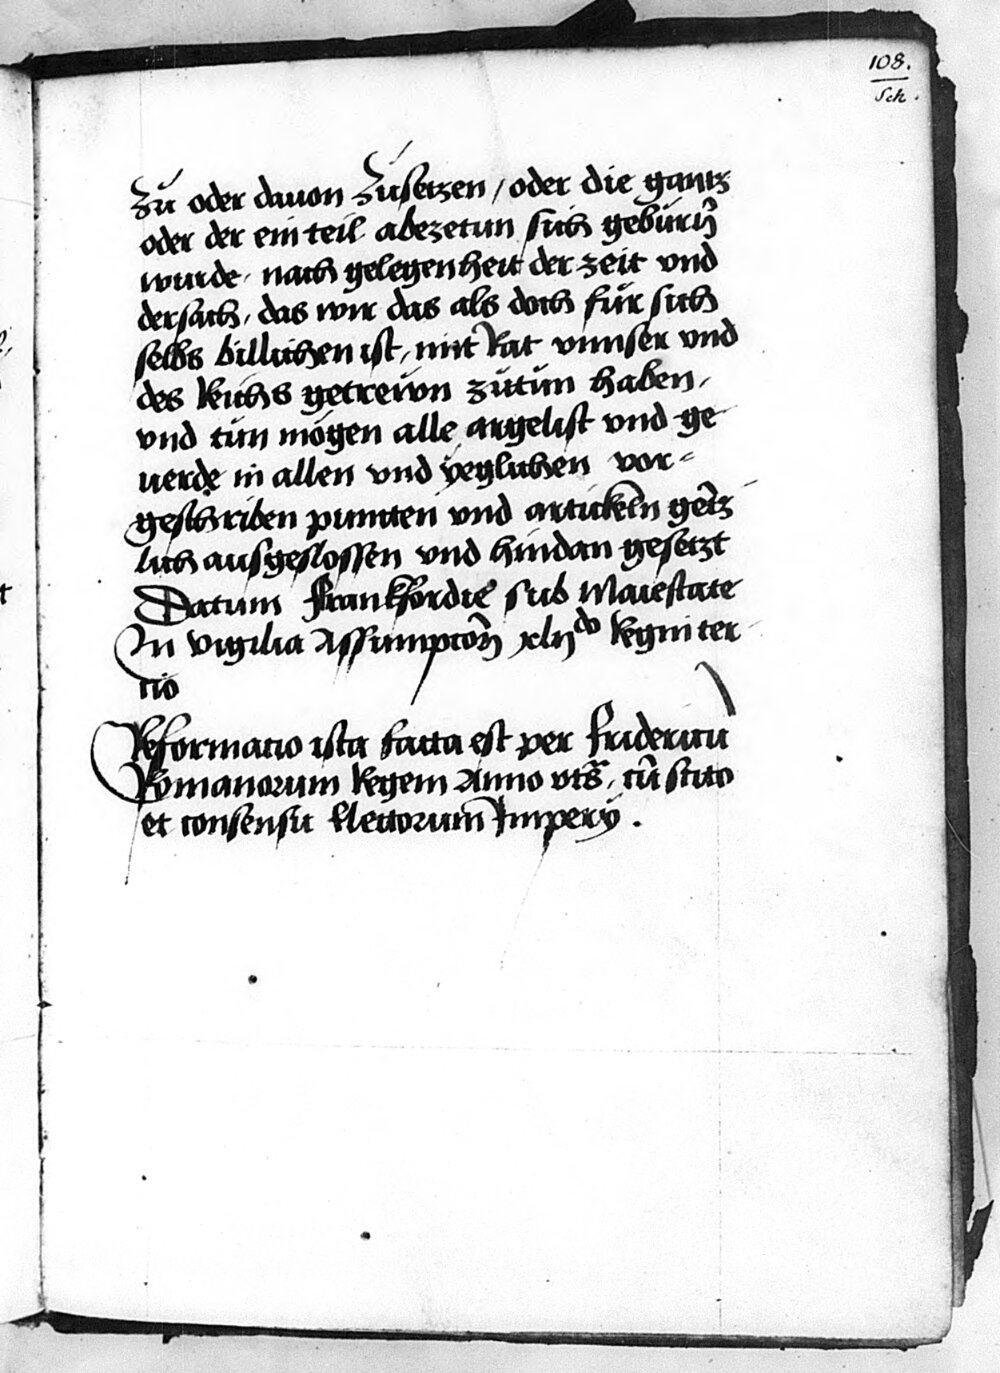 108.
Sch.
Zů oder dauon Zůsetzen / oder die gantz
oder der ein teil abezetun sich gebürñ
wurde / nach gelegenheit der zeit vnd
der sach / das wir das als doch für sich
selbs billichen ist / mit Rat vnnser vnd
des Reichs getreẅen zůtůn haben /
vnd tůn mögen alle argelist vnd ge
uerde in allen vnd ÿeglichen vor=
geschriben puncten vnd artickeln gētz
lich ausgeslossen vnd hindan gesetzt
Datum Frankfordie sub Maiestate
In vigilia Assumpcoīs xlijdo Regni ter
cio
Reformacio ista facta est per Fridericū
Romanorum Regem Anno vts̄ / cū scito
et consensu Electorum Imperÿ .